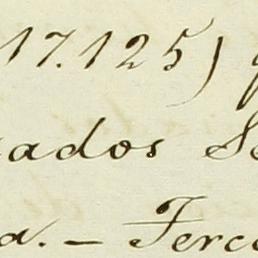 17.125)
ados Se
a. - Terc